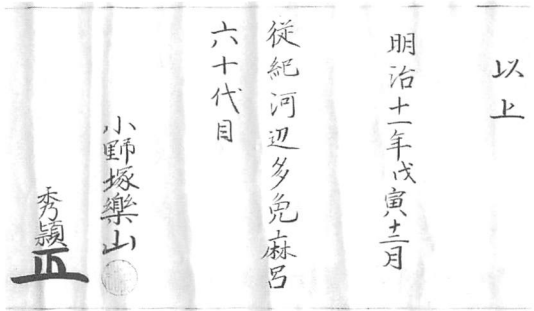 以上
明治十一年戊寅十二月
従紀河辺多免麻呂
六十代目
小野塚樂山
秀穎